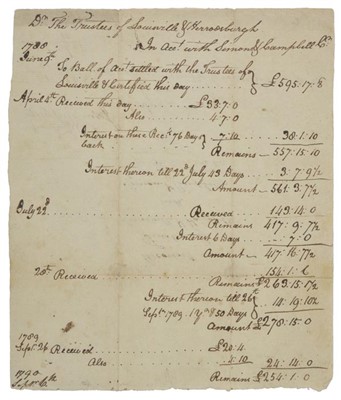 Dr. The Trustees of Louisville & Harrodsburgh
In Acct with Simon & Campbell Co.
1788
June 9th To Ball. of Acct settled with the Trustees of
Louisville & Certified this day £595.17.8
April 4th Received this day £33.7.0
Also 4.7.0
Interest on these Recpts 76 Days 7.10 38.1.10
back Remains 557.15.10
Interest thereon till 22d July 43 Days 3.7.9½
Amount 561.3.7½
July 22d Received 143.14.0
Remains 417.9.7½
Interest 6 Days 7.0
Amount 417.16.7½
28th Received 154.1.6
Remains £263.15.1½
Interest thereon till 26th 14.19.10½
Septr. 1789. 1 yr & 50 Days
Amount £278.15.0
1789
Sept 26 Received £20.4
Also 4.10 24.14.0
1790 Remains £254.1.0